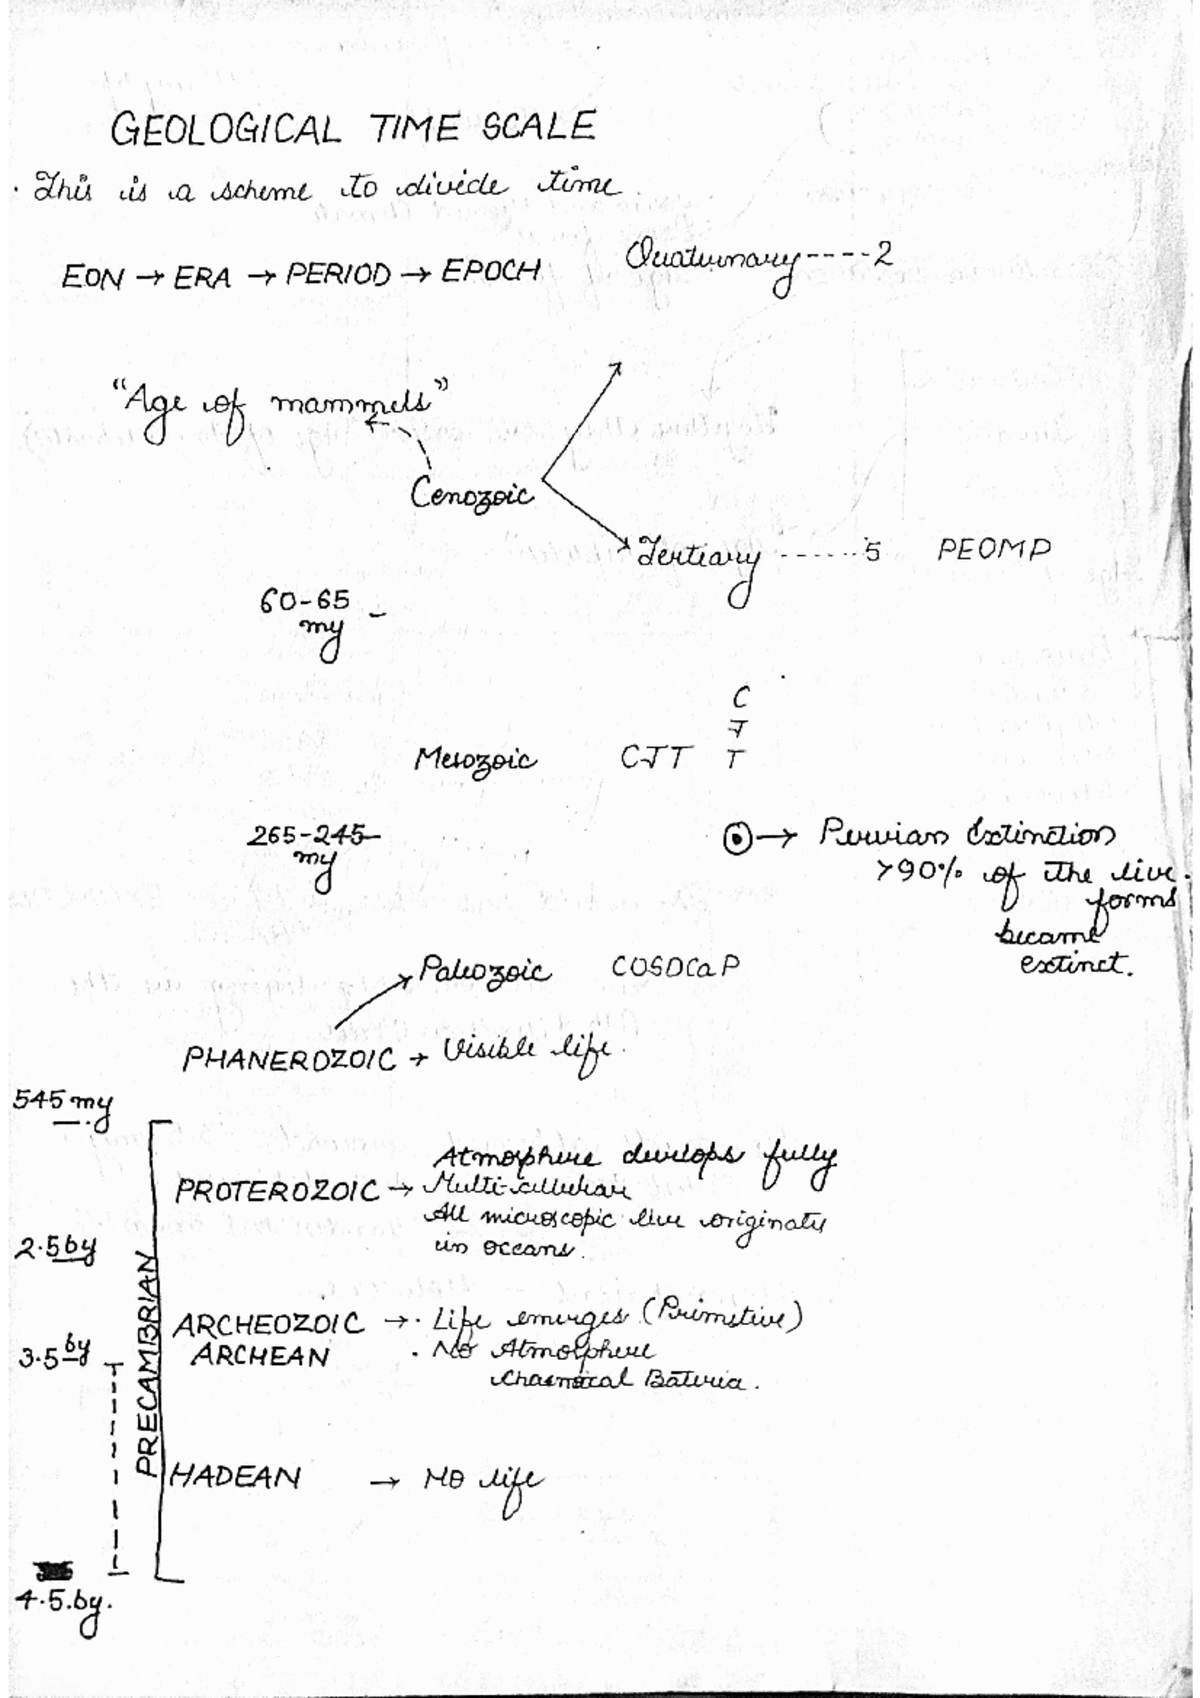 GEOLOGICAL TIME SCALE
· This is a scheme to divide time
EON → ERA → PERIOD → EPOCH
Quaternary ----2
"Age of mammels"
Cenozoic
Tertiary ------5 PEOMP
60-65
my
C
J
T
Mesozoic CJT
265-245
my
→ Permian Extinction
>90% of the live
forms
became
extinct.
Paleozoic COSDCaP
PHANEROZOIC → Visible life.
545 my
Atmosphere develops fully
PROTEROZOIC → Multi-cellular
All microscopic live originates
in oceans.
2.5by
PRECAMBRIAN
ARCHEOZOIC → · Life emerges (Primitive)
3.5by
ARCHEAN · No Atmosphere
Bateria.
HADEAN → No life
4.5.by.